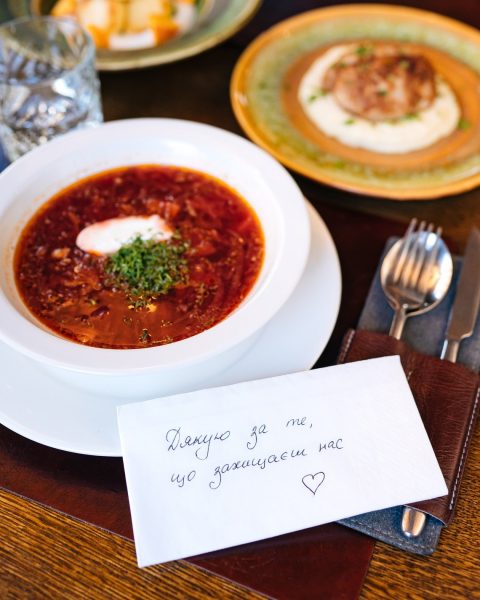 Дякую за те,
що захищаєш нас
♡